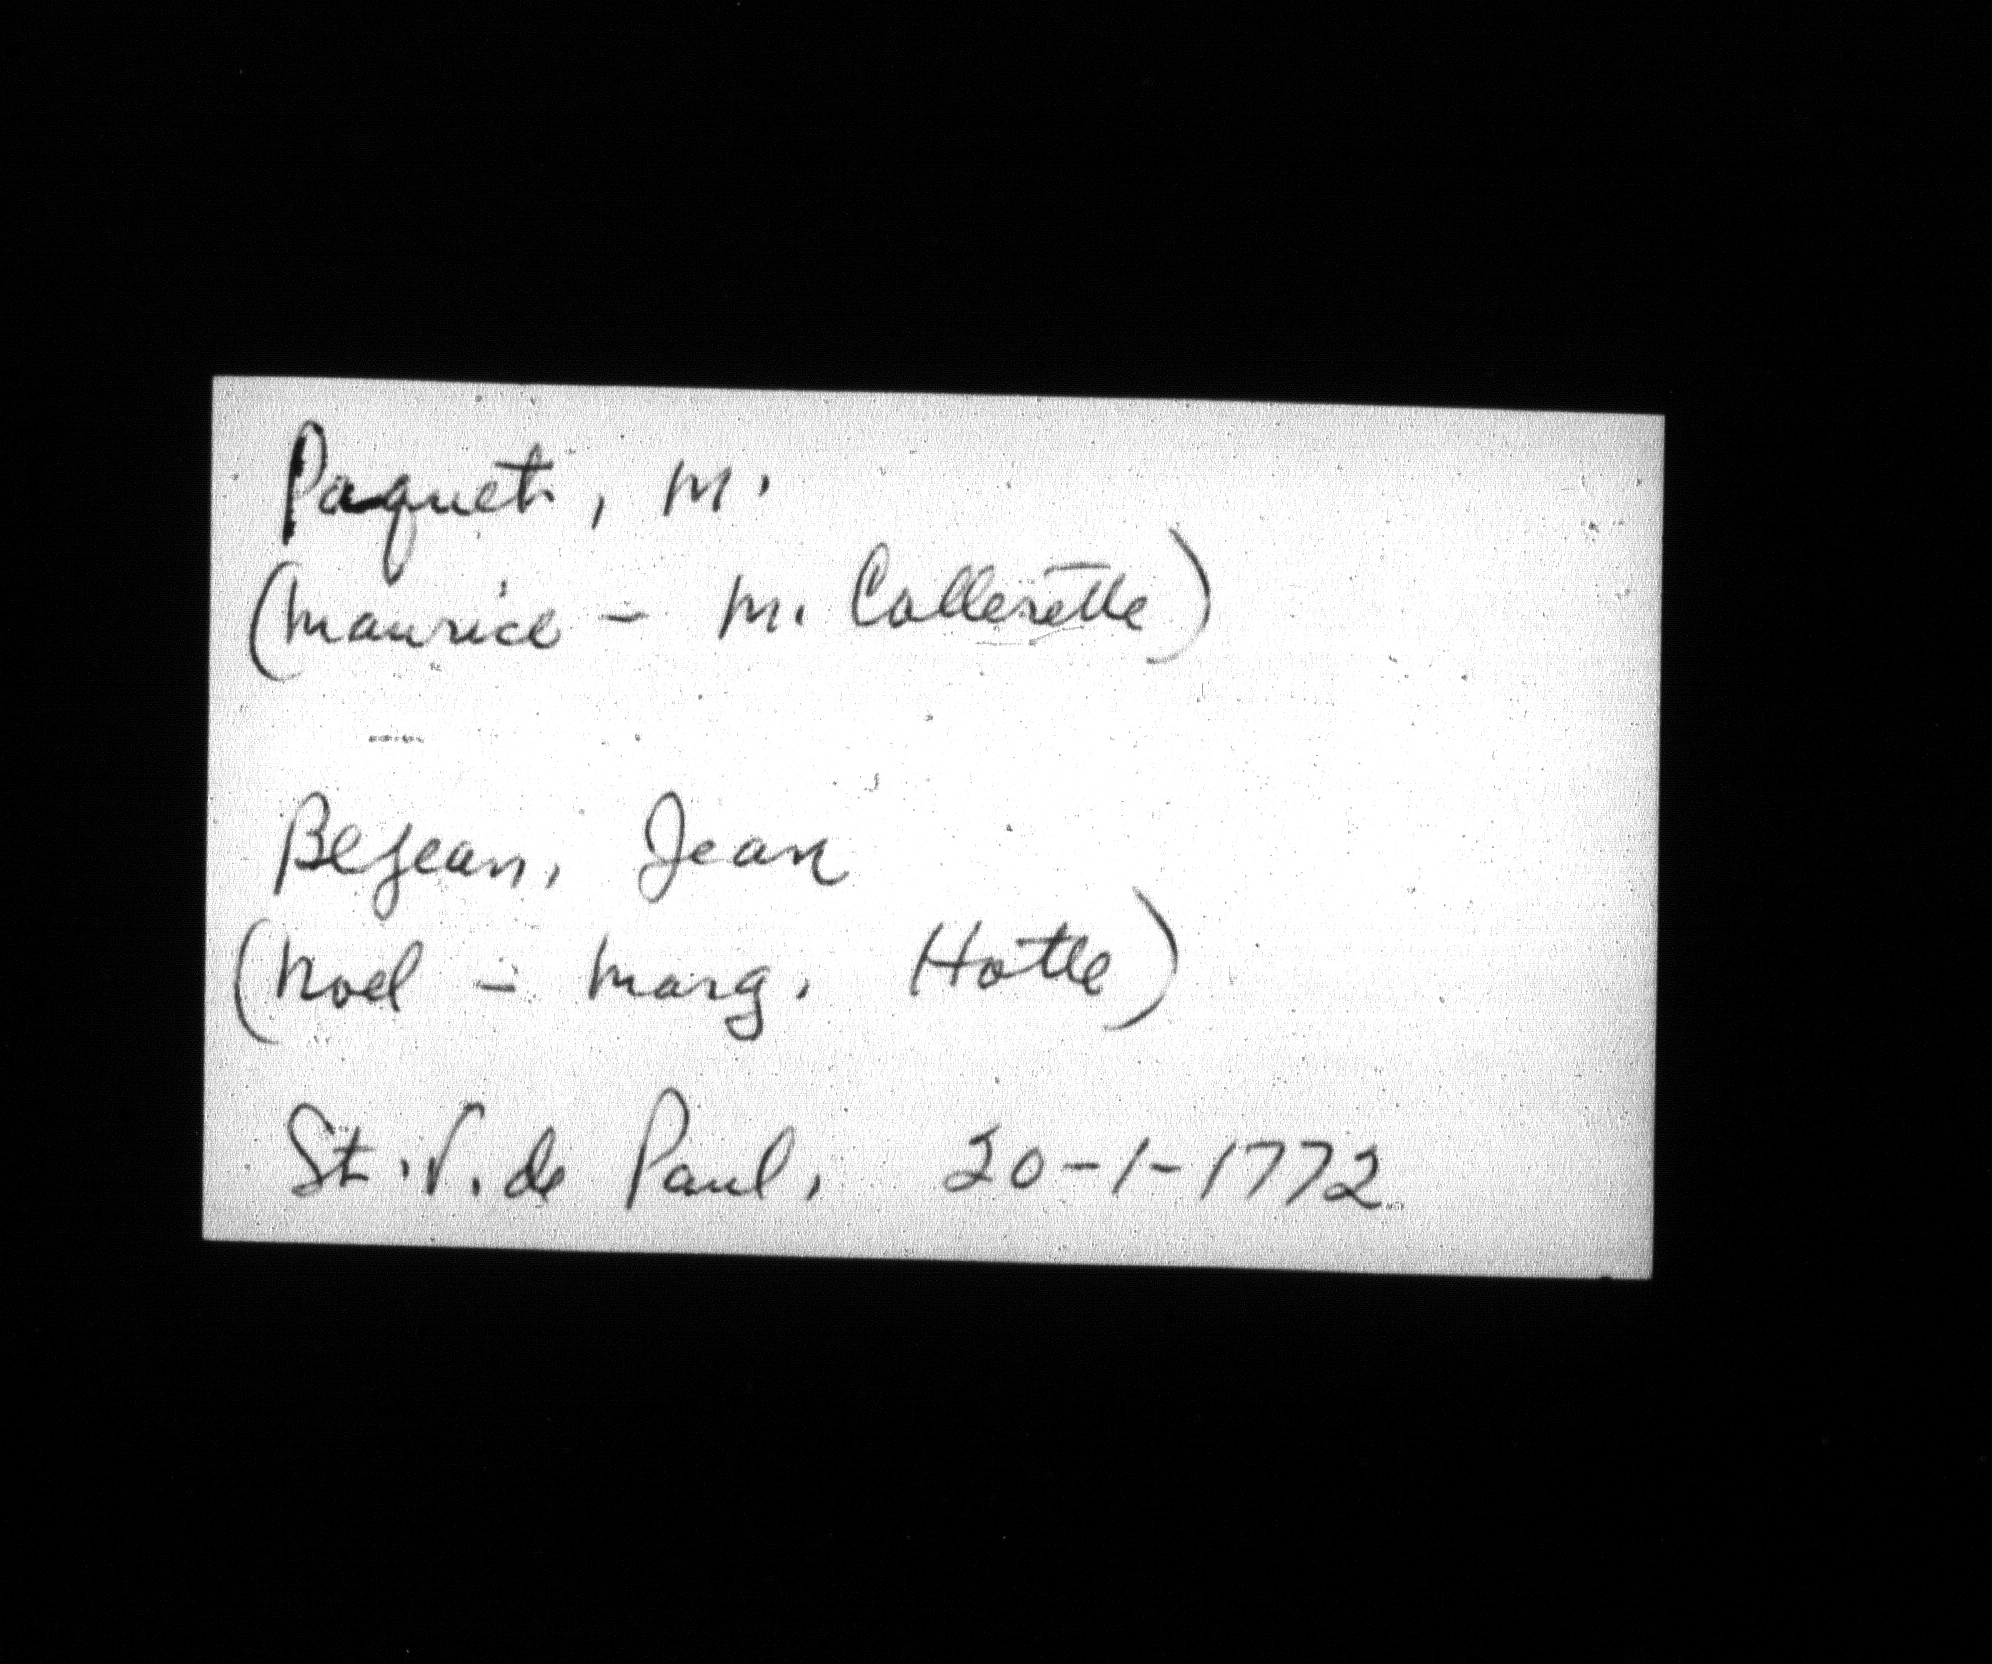 Paquet, M.
(Maurice - M. Collerette)
BeJean, Jean
(Noel - Marg. Hotte)
St. V. de Paul, 20-1-1772